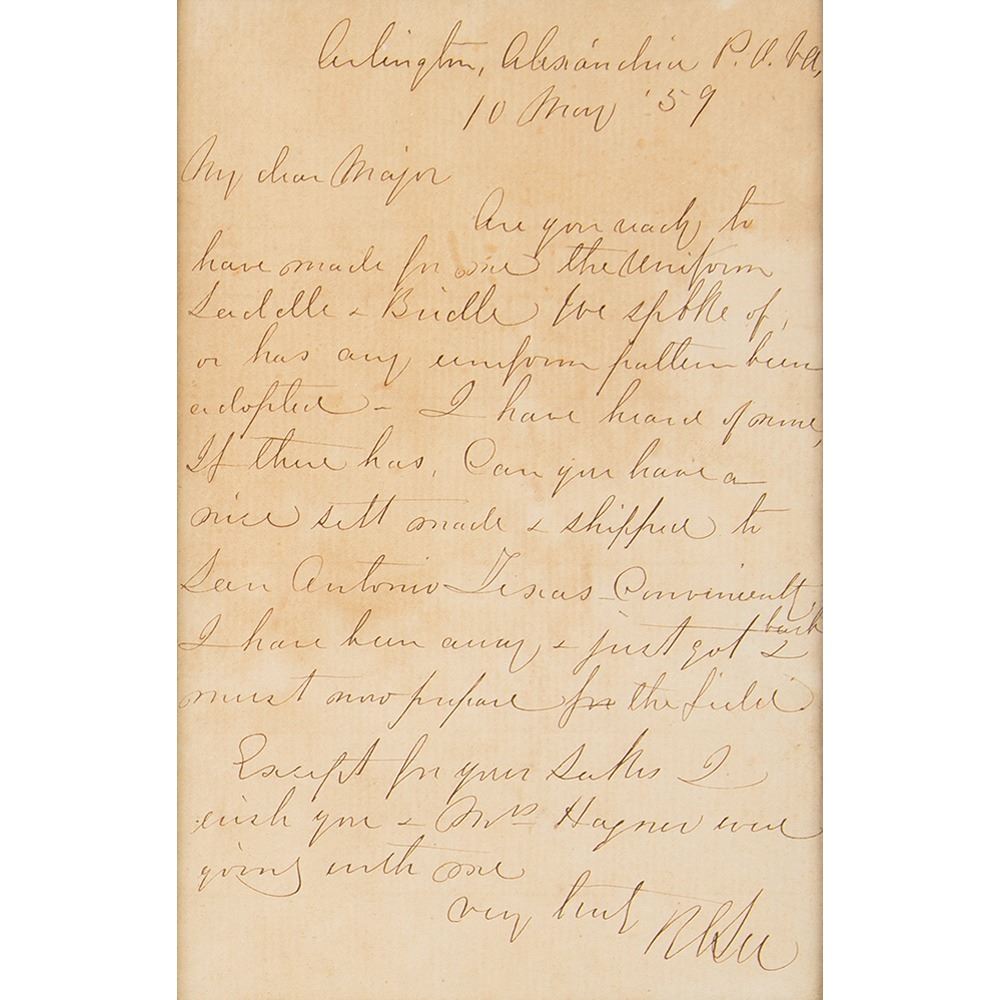 Arlington, Alexandria P. O. Va,
10 May '59
My dear Major
Are you ready to
have made for me the Uniform
Saddle & Bridle We spoke of,
or has any uniform pattern been
adopted - I have heard of none,
If there has, Can you have a
nice sett made & shipped to
San Antonio Texas - Conveniently,
I have been away & just got back &
must now prepare for the field.
Except for your sakes I
wish you & Mrs Hagner were
going with me
very truly RELee